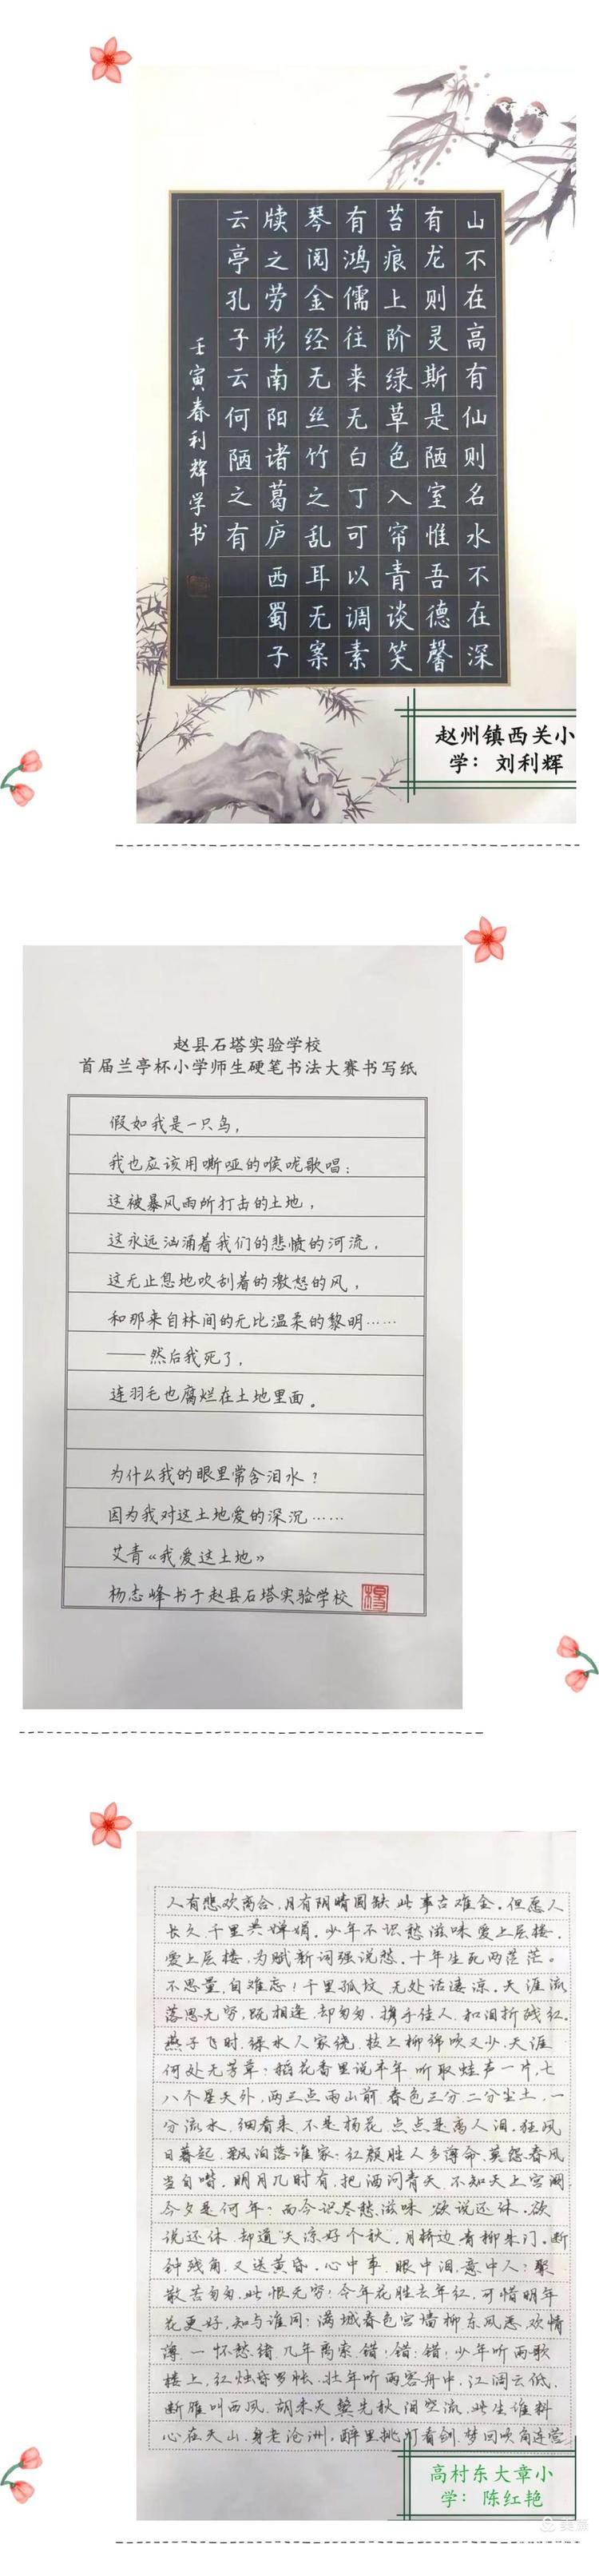 山不在高有仙则名水不在深
有龙则灵斯是陋室惟吾德馨
苔痕上阶绿草色入帘青谈笑
有鸿儒往来无白丁可以调素
琴阅金经无丝竹之乱耳无案
牍之劳形南阳诸葛庐西蜀子
云亭孔子云何陋之有
壬寅春利辉学书
赵州镇西关小
学：刘利辉
赵县石塔实验学校
首届兰亭杯小学师生硬笔书法大赛书写纸
假如我是一只鸟，
我也应该用嘶哑的喉咙歌唱：
这被暴风雨所打击的土地，
这永远汹涌着我们的悲愤的河流，
这无止息地吹刮着的激怒的风，
和那来自林间的无比温柔的黎明……
——然后我死了，
连羽毛也腐烂在土地里面。
为什么我的眼里常含泪水？
因为我对这土地爱的深沉……
艾青《我爱这土地》
杨志峰书于赵县石塔实验学校
人有悲欢离合，月有阴晴圆缺，此事古难全。但愿人
长久，千里共婵娟。少年不识愁滋味，爱上层楼，
爱上层楼，为赋新词强说愁。十年生死两茫茫。
不思量，自难忘！千里孤坟，无处话凄凉。天涯流
落思无穷，既相逢，却匆匆，携手佳人，和泪折残红。
燕子飞时，绿水人家绕，枝上柳绵吹又少，天涯
何处无芳草？稻花香里说丰年，听取蛙声一片，七
八个星天外，两三点雨山前，春色三分，二分尘土，一
分流水，细看来，不是杨花，点点是离人泪。狂风
日暮起，飘泊落谁家？红颜胜人多薄命，莫怨春风
当自嗟。明月几时有，把酒问青天，不知天上宫阙，
今夕是何年？而今识尽愁滋味，欲说还休，欲
说还休，却道"天凉好个秋"。月桥边，青柳朱门。断
钟残角，又送黄昏。心中事，眼中泪，意中人？聚
散苦匆匆，此恨无穷！今年花胜去年红，可惜明年
花更好，知与谁同？满城春色宫墙柳，东风恶，欢情
薄，一怀愁绪，几年离索，错！错！错！少年听雨歌
楼上，红烛昏罗帐，壮年听雨客舟中，江阔云低，
断雁叫西风，胡未灭，鬓先秋，泪空流，此生谁料
心在天山，身老沧洲。醉里挑灯看剑，梦回吹角连营
高村东大章小
学：陈红艳